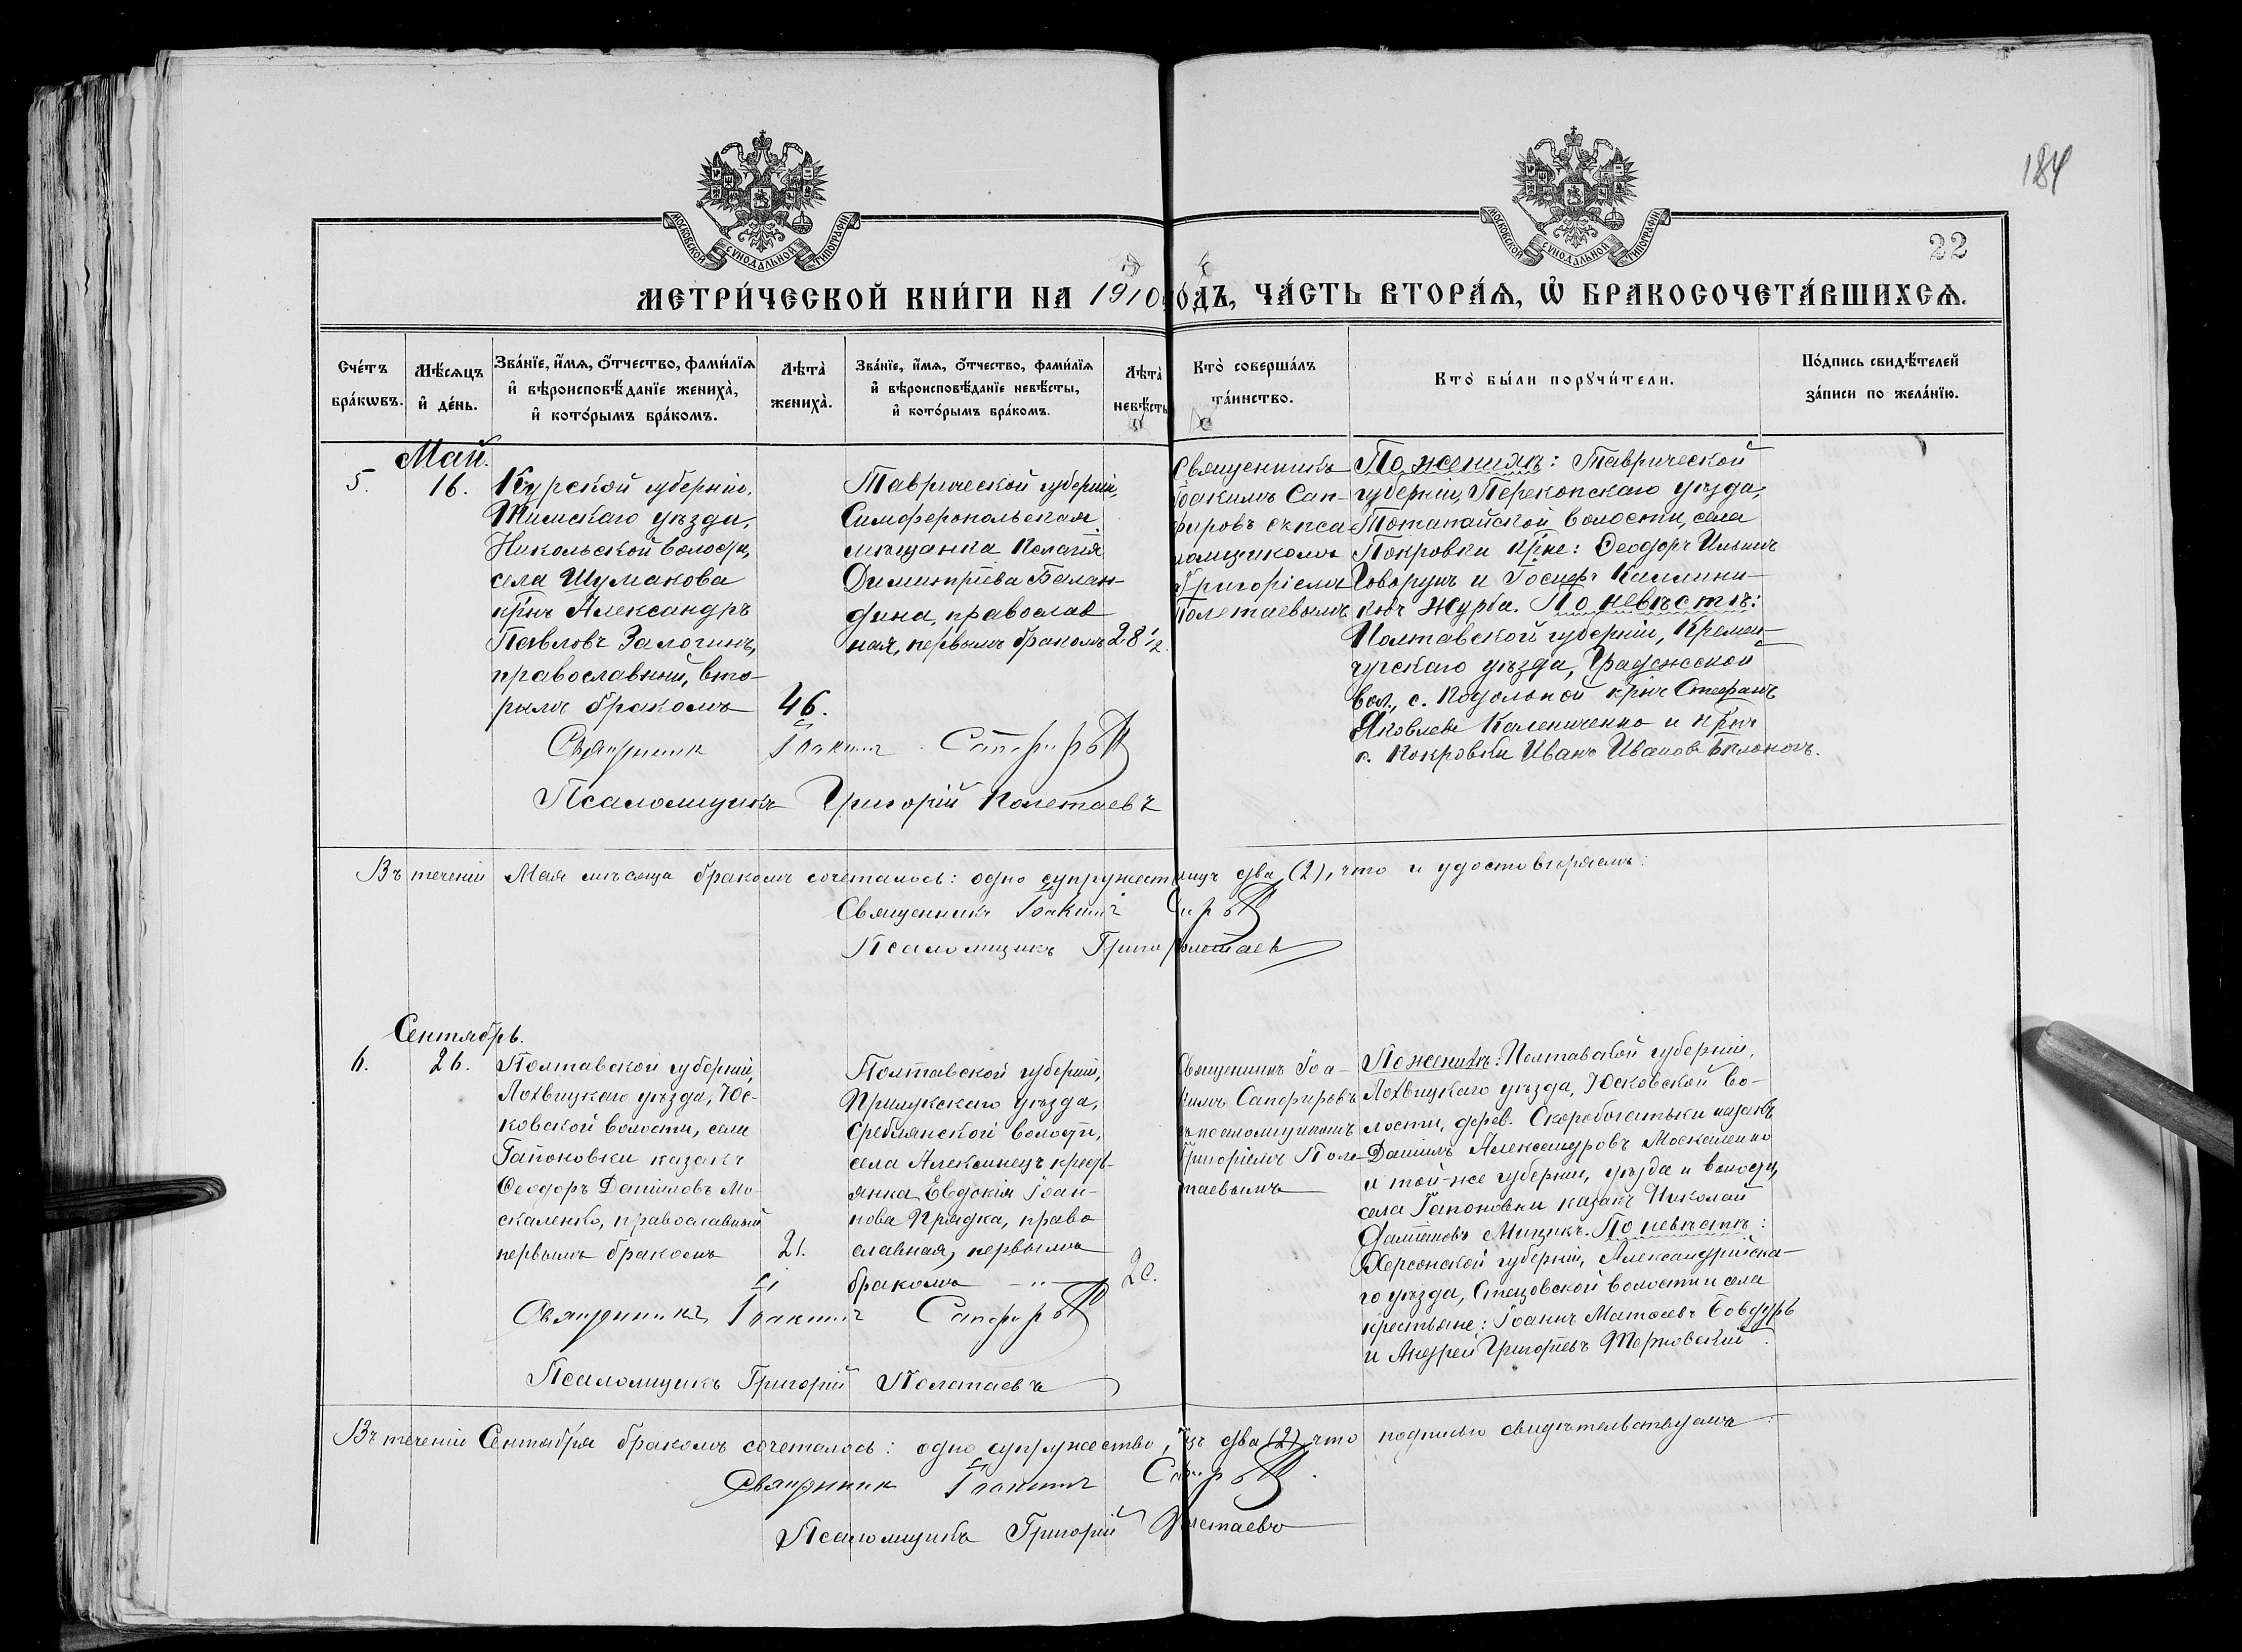 184
МОСКОВСКОЙ СѴНОДАЛЬНОЙ ТИПОГРАФІИ
МОСКОВСКОЙ СѴНОДАЛЬНОЙ ТИПОГРАФІИ
22
МЕТРИ́ЧЕСКОЙ КНИ́ГИ НА 1910 ГО́ДЪ, ЧА́СТЬ ВТОРА́Я, Ѡ҆ БРАКОСОЧЕТА́ВШИХСЯ.
Сче́тъ бра́кѡвъ.
Мѣ́сяцъ и҆ де́нь.
Зва́нїе, и҆́мѧ, ѻ҆́тчество, фами́лїѧ
и҆ вѣроисповѣ́данїе жениха̀,
и҆ кото́рымъ бра́комъ.
Лѣта̀ жениха̀.
Зва́нїе, и҆́мѧ, ѻ҆́тчество, фами́лїѧ
и҆ вѣроисповѣ́данїе невѣ́сты,
и҆ кото́рымъ бра́комъ.
Лѣта̀ невѣ́сты
Кто̀ соверша́лъ
та́инство.
Кто̀ бы́ли порꙋчи́тели.
По́дпись свидѣ́телей
за́писи по жела́нїю.
Май.
5.
16.
Курской губерніи,
Тимскаго уѣзда,
Никольской волости,
села Шумакова
кр̃нъ Александръ
Павловъ Залогинъ,
православный, вто-
рымъ бракомъ
46.
Таврической губерніи,
Симферопольская
мѣщанка Пелагія
Димитріева Балан-
дина, православ
ная, первымъ бракомъ
28 ½.
Священникъ
Іоакимъ Сап-
фировъ съ пса-
ломщикомъ
Григоріемъ
Полетаевымъ
По женихѣ: Таврической
губерніи, Перекопскаго уѣзда,
Тотанайской волости, села
Покровки кр̃не: Ѳеодоръ Ильинъ
Говорунъ и Іосифъ Каллини-
ковъ Журба. По невѣстѣ:
Полтавской губерніи, Кремен-
чугскаго уѣзда, Градижской
вол., с. Подольной кр̃нъ Стефанъ
Яковлевъ Калениченко и кр̃нъ
с. Покровки Иванъ Ивановъ Бѣлоконъ.
Священникъ Іоакимъ Сапфировъ
Псаломщикъ Григорій Полетаевъ
Въ теченіи Мая мѣсяца бракомъ сочеталось: одно супружест лицъ два (2), что и удостовѣряемъ:
Священникъ Іоакимъ
Псаломщикъ Григо Полетаевъ
Сентябрь.
6.
26.
Полтавской губерніи,
Лохвицкаго уѣзда, Юс-
ковской волости, села
Гапоновки казакъ
Ѳеодоръ Даніиловъ Мо-
скаленко, православный
первымъ бракомъ
21.
Полтавской губерніи,
Прилукскаго уѣзда,
Сребнянской волости,
села Алексинецъ кресть-
янка Евдокія Іоан-
нова Прядка, право
славная, первымъ
бракомъ — " —
20.
Священникъ Іоа-
кимъ Сапфировъ
съ псаломщикомъ
Григоріемъ Поле-
таевымъ
По женихѣ: Полтавской губерніи,
Лохвицкаго уѣзда, Юсковской во-
лости, дерев. Скоробогатьки казакъ
Даніилъ Александровъ Москаленко
и той-же губерніи, уѣзда и волости,
села Гапоновки казакъ Николай
Мицикъ. По невѣстѣ:
Херсонской губерніи, Александрійска-
го уѣзда, Стецовской волости и села
крестьяне: Іоаннъ Матѳеевъ Бовдуръ
и Андрей Григорьевъ Терновскій.
Священникъ Іоакимъ Сапфировъ
Псаломщикъ Григорій Полетаевъ
Въ теченіи Сентября бракомъ сочеталось: одно супружество, лицъ два (2), что подписью свидѣтельствуемъ:
Священникъ Іоакимъ
Псаломщикъ Григорій Полетаевъ